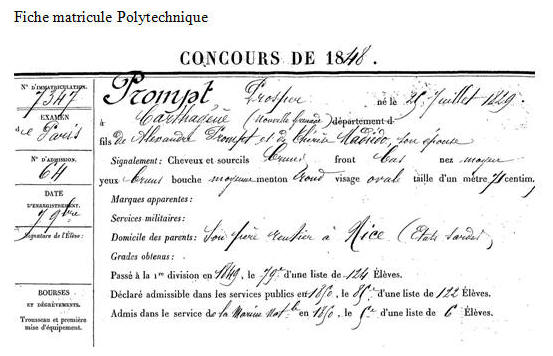 Fiche matricule Polytechnique
CONCOURS DE 1848.
N° D'IMMATRICULATION.
7347
EXAMEN
de Paris
N° D'ADMISSION.
64
DATE
D'ENREGISTREMENT.
7 9bre
Signature de l'Élève:
BOURSES
ET DÉGRÈVEMENTS.
Trousseau et première
mise d'équipement.
Prompt Prosper né le 25 Juillet 1829.
à Carthagène (Nouvelle Grenade) département d
fils de Alexandre Prompt et de Thérèse Madiédo, son épouse
Signalement: Cheveux et sourcils bruns front bas nez moyen
yeux bruns bouche moyenne menton rond visage ovale taille d'un mètre 71 centim.
Marques apparentes:
Services militaires:
Domicile des parents: Son père rentier à Nice (États Sardes)
Grades obtenus:
Passé à la 1re division en 1849, le 79e d'une liste de 124 Élèves.
Déclaré admissible dans les services publics en 1850, le 85e d'une liste de 122 Élèves.
Admis dans le service de la Marine Natle en 1850, le 5e d'une liste de 6 Élèves.